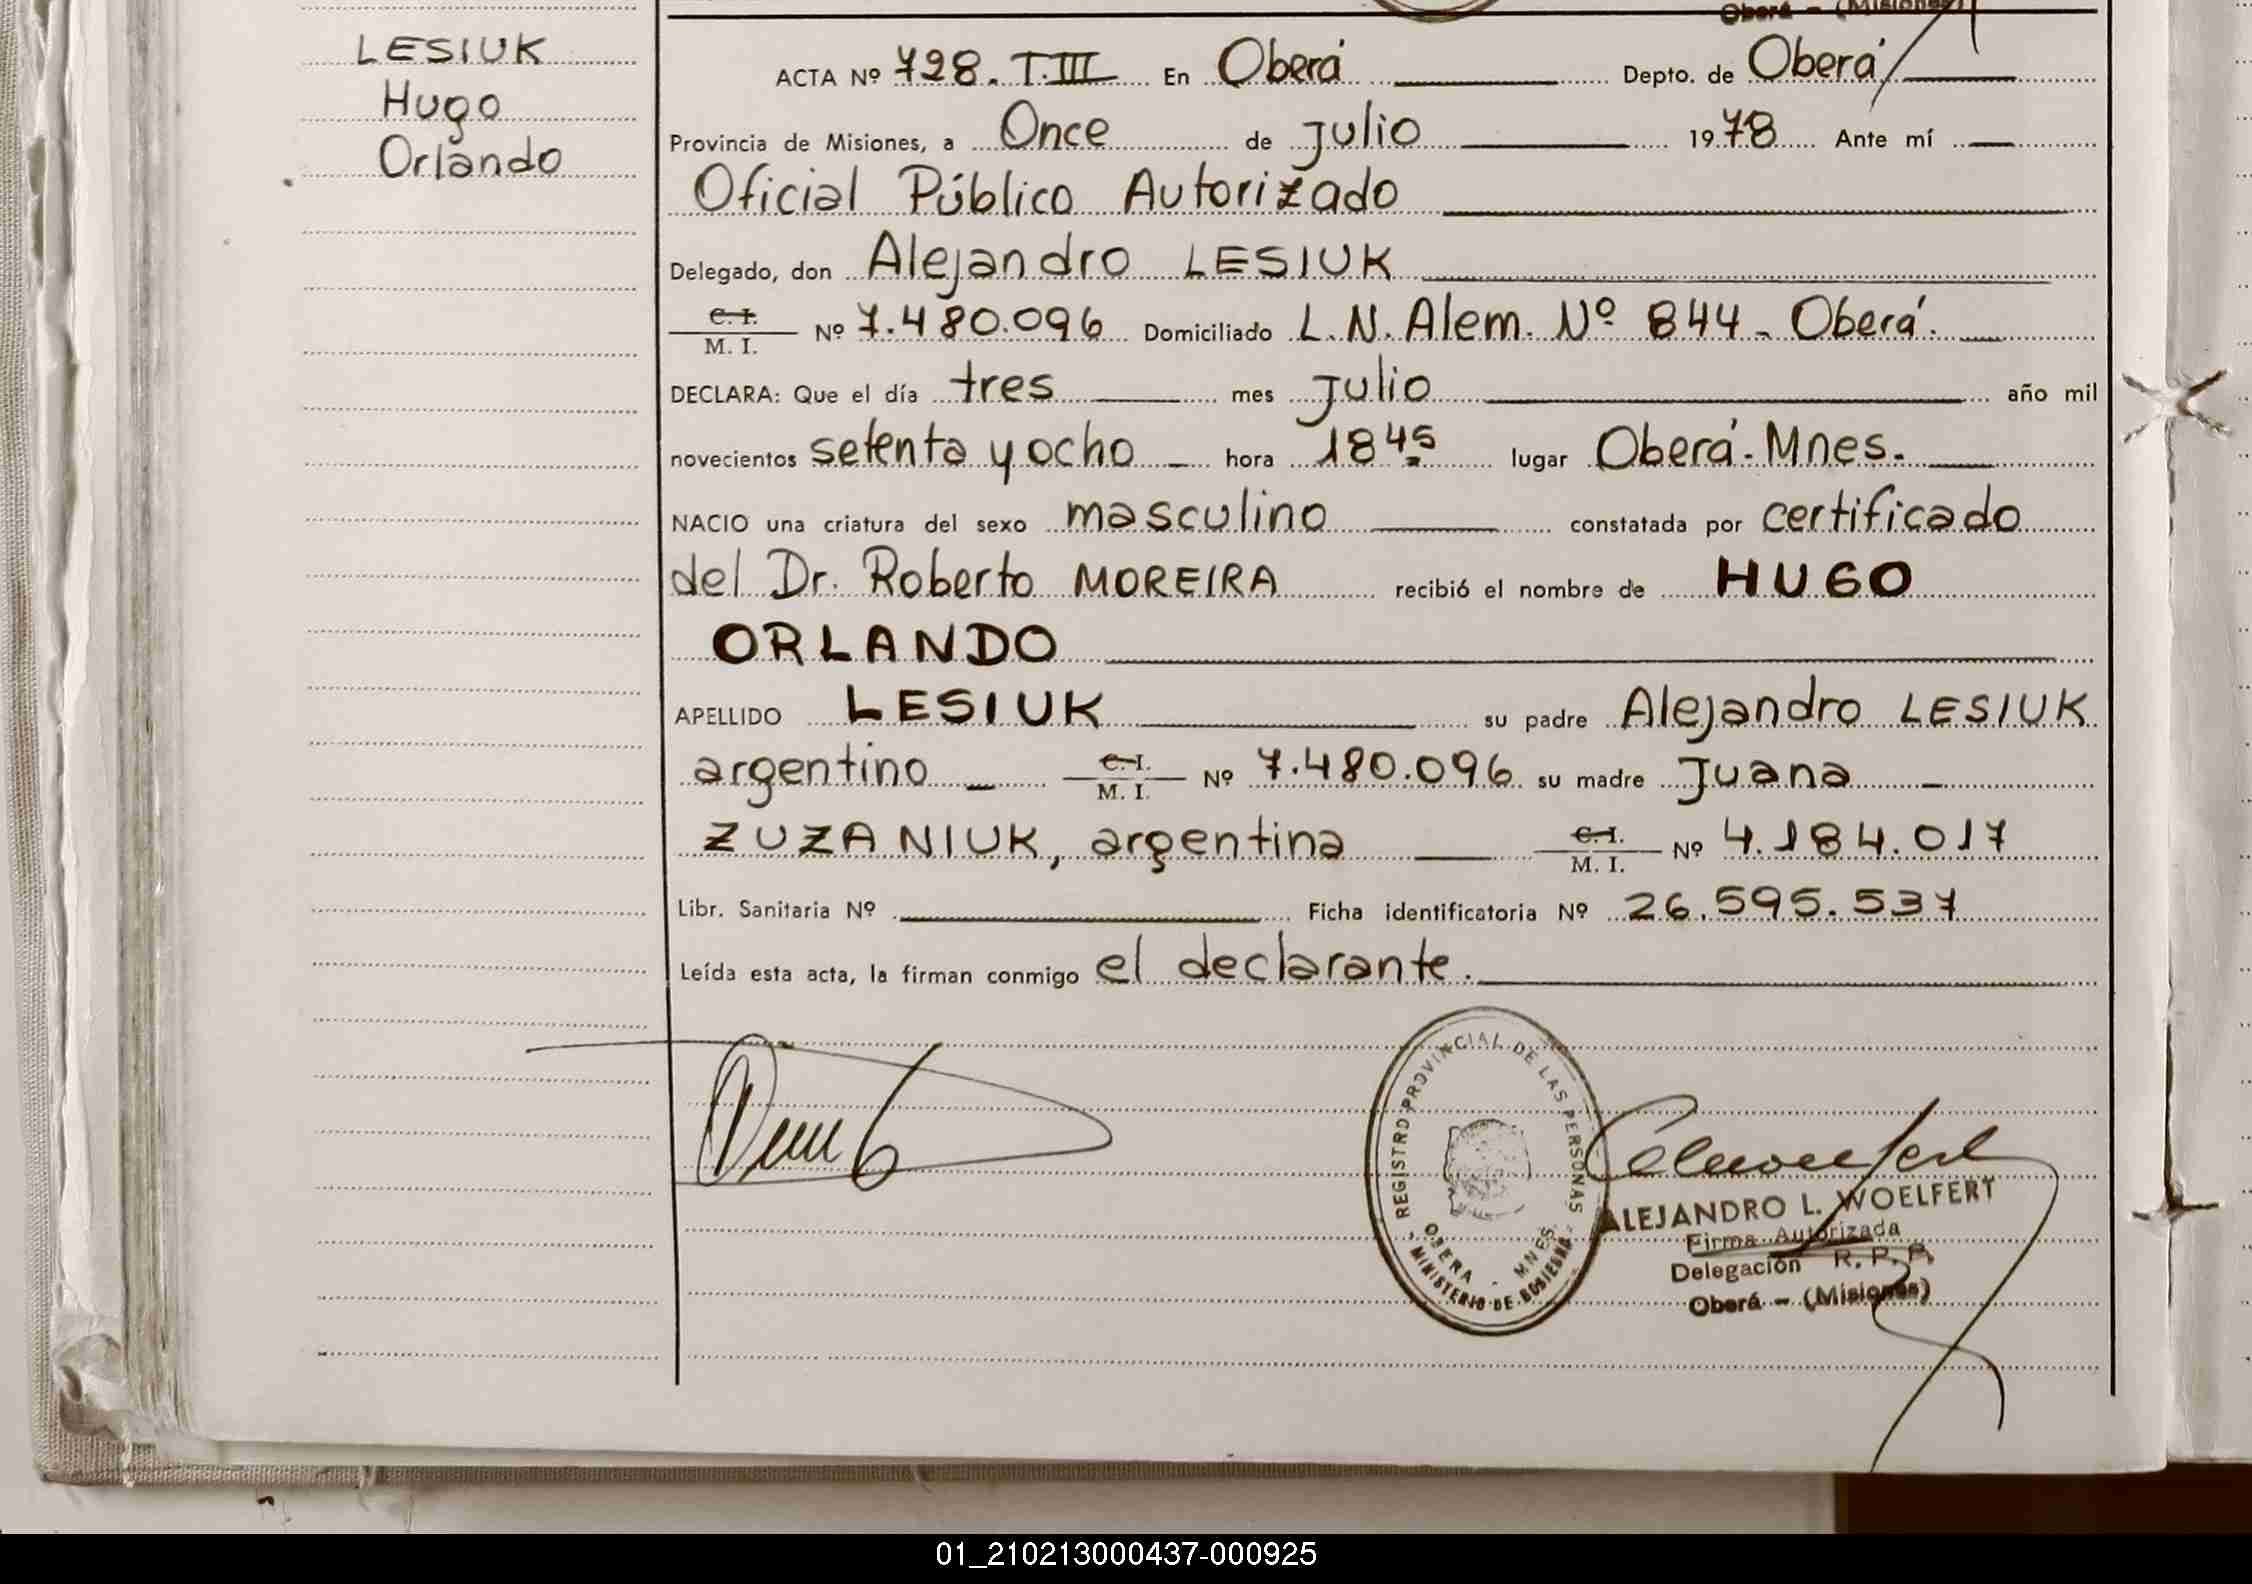 Oberá - (Misiones)
LESIUK
Hugo
Orlando
ACTA Nº 728. T.III En Oberá Depto. de Oberá
Provincia de Misiones, a Once de Julio 1978 Ante mí
Oficial Público Autorizado
Delegado, don Alejandro LESIUK
C. I.
M. I. Nº 7.480.096 Domiciliado L.N. Alem. Nº 844 - Oberá.
DECLARA: Que el día tres mes Julio año mil
novecientos setenta y ocho hora 18 45 lugar Oberá. Mnes.
NACIO una criatura del sexo masculino constatada por certificado
del Dr. Roberto MOREIRA recibió el nombre de HUGO
ORLANDO
APELLIDO LESIUK su padre Alejandro LESIUK
argentino C. I. M. I. Nº 7.480.096 su madre Juana
ZUZANIUK, argentina C. I. M. I. Nº 4.184.017
Libr. Sanitaria Nº Ficha identificatoria Nº 26.595.537
Leída esta acta, la firman conmigo el declarante.
REGISTRO PROVINCIAL DE LAS PERSONAS
OBERA - MNES.
MINISTERIO DE
ALEJANDRO L. WOELFERT
Firma Autorizada
Delegación R. P. P.
Oberá - (Misiones)
01_210213000437-000925